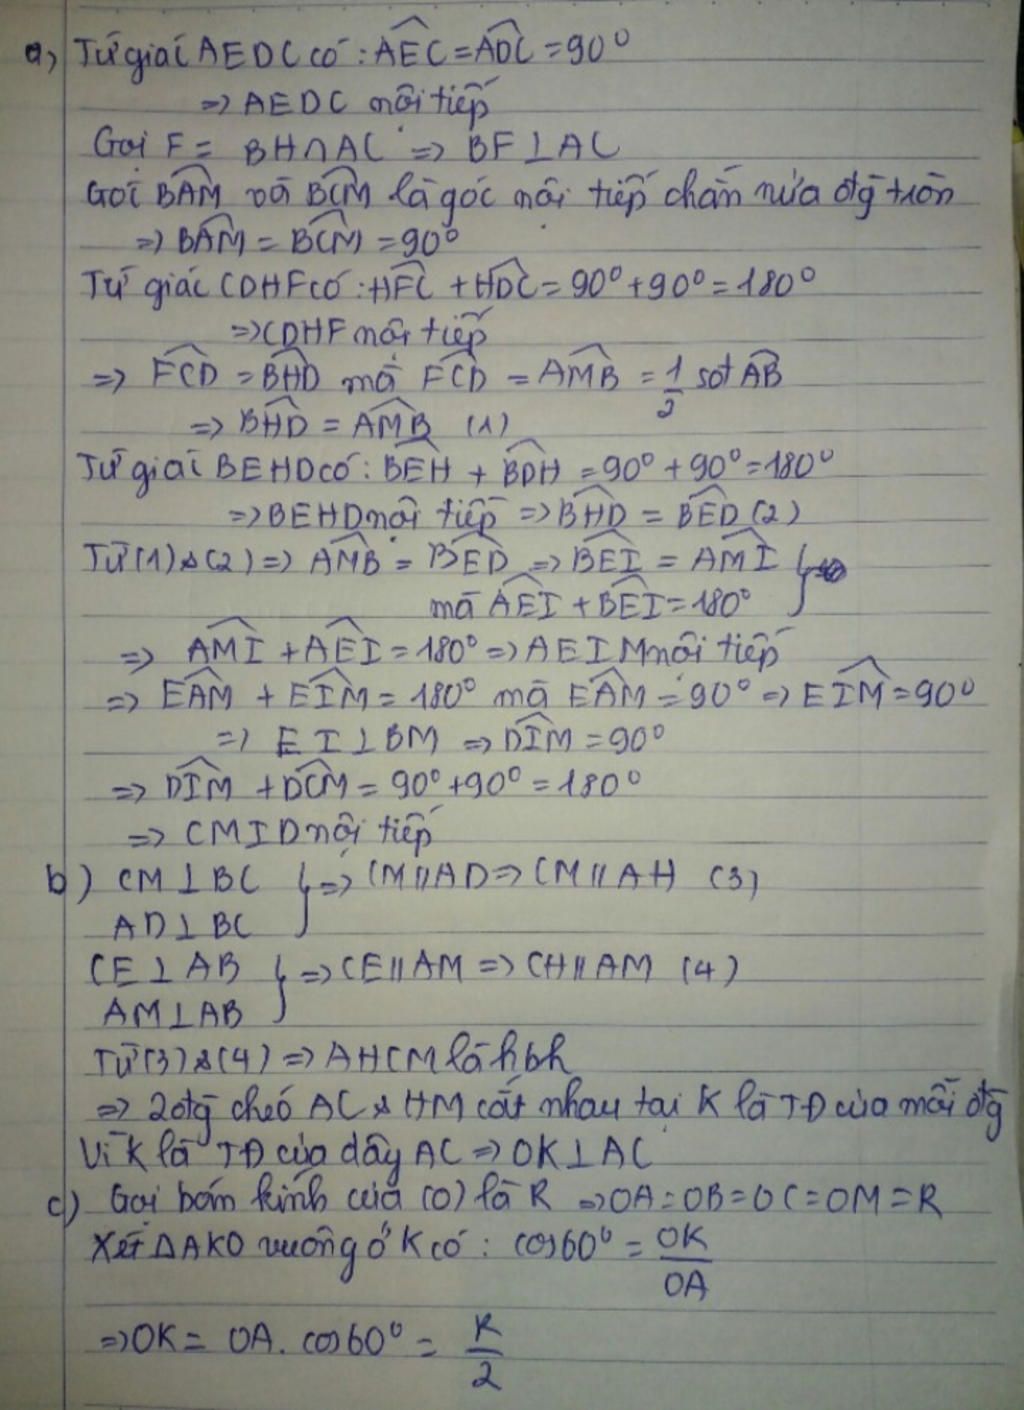 a) Tứ giác AEDC có : AEC = ADC = 90°
=> AEDC nội tiếp
Gọi F = BH∩AC => BF⊥AC
Góc BAM và BCM là góc nội tiếp chắn nửa đtg tròn
=> BAM = BCM = 90°
Tứ giác CDHF có : HFC + HDC = 90° + 90° = 180°
=> CDHF nội tiếp
=> FCD = BHD mà FCD = AMB = 1/2 sđ AB
=> BHD = AMB (1)
Tứ giác BEHD có : BEH + BDH = 90° + 90° = 180°
=> BEHD nội tiếp => BHD = BED (2)
Từ (1) & (2) => AMB = BED => BEI = AMI
mà AEI + BEI = 180°
=> AMI + AEI = 180° => AEIM nội tiếp
=> EAM + EIM = 180° mà EAM = 90° => EIM = 90°
=> EI⊥BM => DIM = 90°
=> DIM + DCM = 90° + 90° = 180°
=> CMID nội tiếp
b) CM⊥BC } => CM//AD => CM//AH (3)
AD⊥BC
CE⊥AB } => CE//AM => CH//AM (4)
AM⊥AB
Từ (3) & (4) => AHCM là hbh
=> 2 đtg chéo AC & HM cắt nhau tại K là TĐ của mỗi đtg
Vì K là TĐ của dây AC => OK⊥AC
c) Gọi bán kính của (O) là R => OA = OB = OC = OM = R
Xét ΔAKO vuông ở K có : cos60° = OK/OA
=> OK = OA . cos60° = R/2